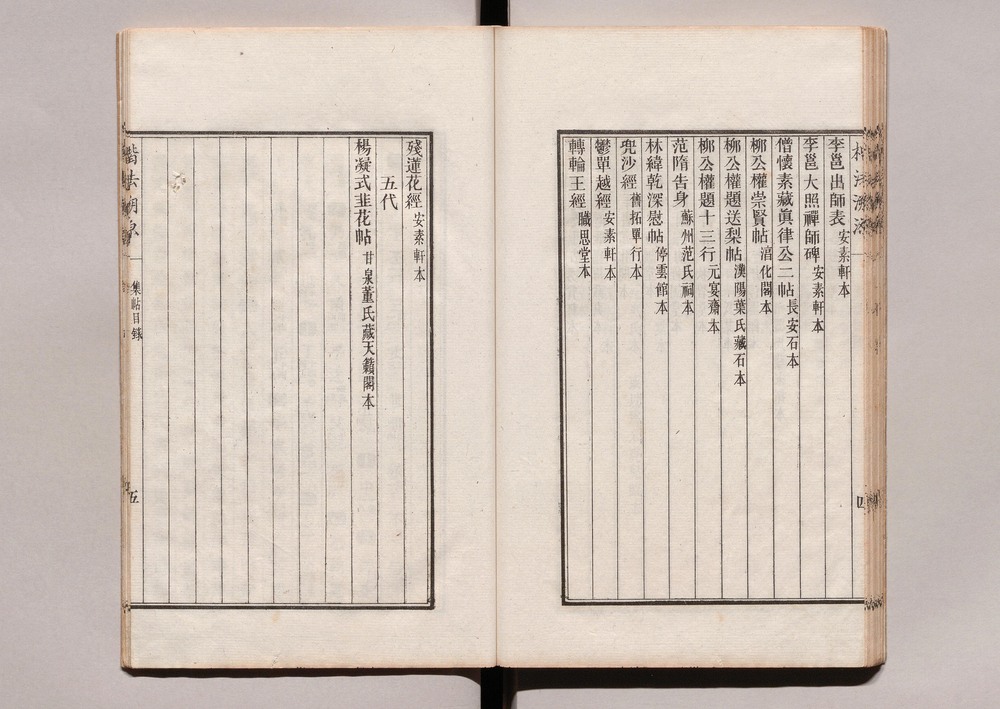 李邕出師表 安素軒本
李邕大照禪師碑 安素軒本
僧懷素藏眞律公二帖 長安石本
柳公權崇賢帖 淯化閣本
柳公權題送梨帖 漢陽葉氏藏石本
柳公權題十三行 元宴齋本
范隋告身 蘇州范氏祠本
林緯乾深慰帖 停雲館本
兜沙經 舊拓單行本
鬱單越經 安素軒本
轉輪王經 職思堂本
四
殘蓮花經 安素軒本
五代
楊凝式韭花帖 甘泉董氏藏天籟閣本
集帖目錄
五